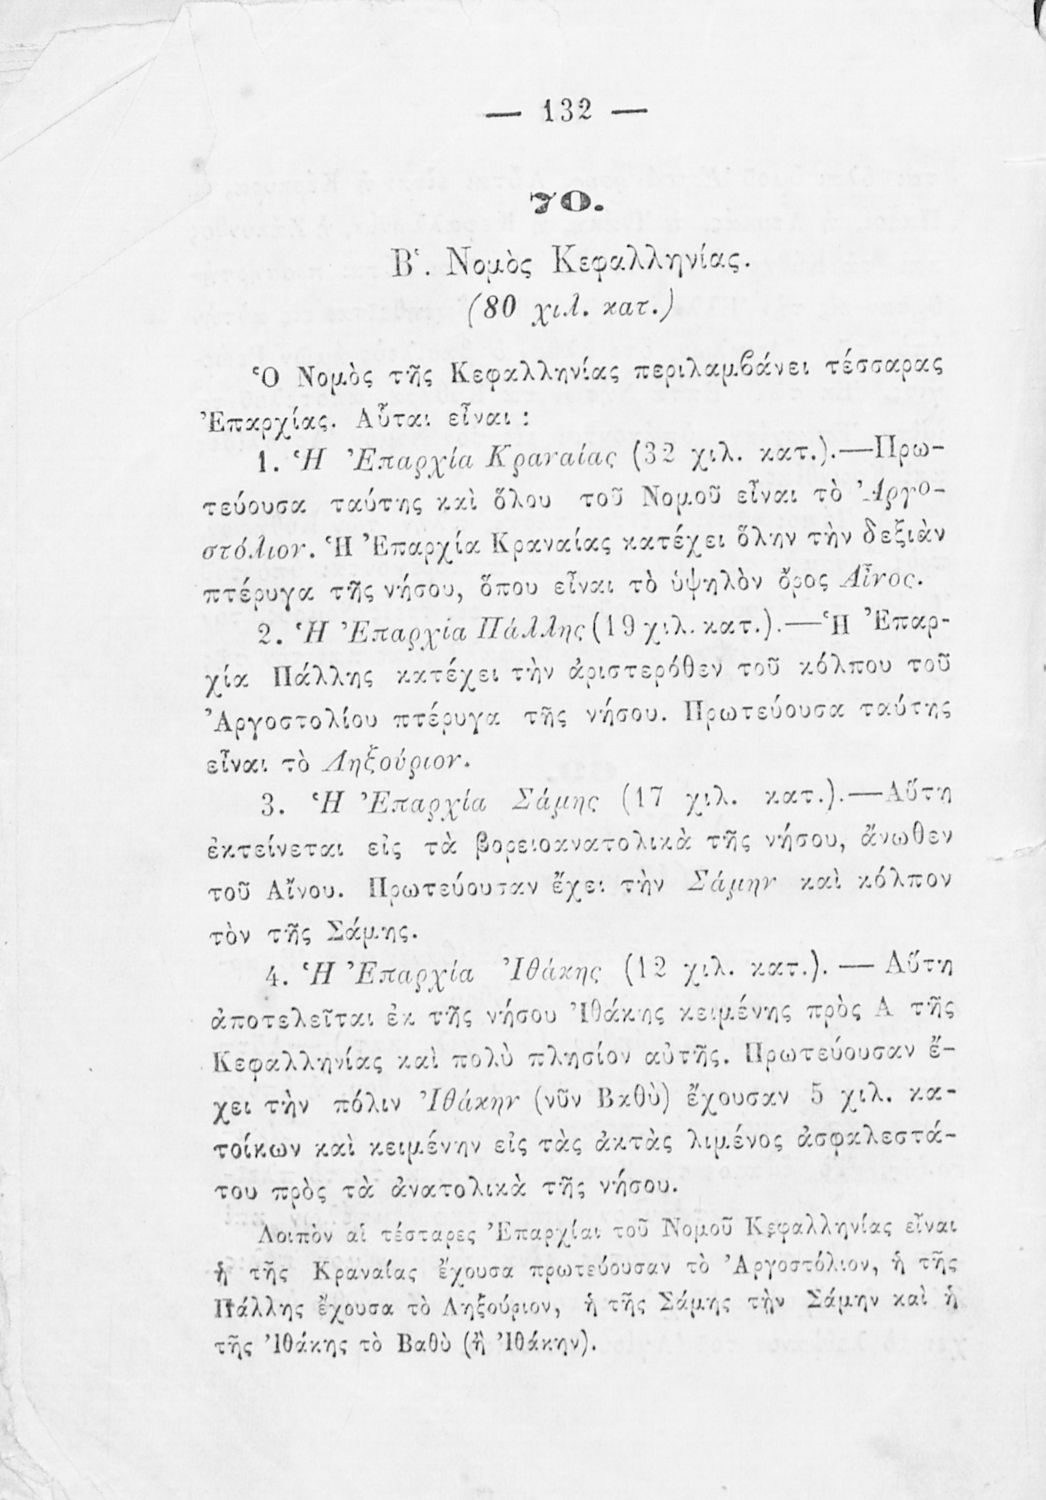 — 132 —
70.
Βʹ. Νομὸς Κεφαλληνίας.
(80 χιλ. κατ.)
Ὁ Νομὸς τῆς Κεφαλληνίας περιλαμβάνει τέσσαρας
Ἐπαρχίας. Αὗται εἶναι :
1. Ἡ Ἐπαρχία Κραναίας (32 χιλ. κατ.).—Πρω-
τεύουσα ταύτης καὶ ὅλου τοῦ Νομοῦ εἶναι τὸ Ἀργο-
στόλιον. Ἡ Ἐπαρχία Κραναίας κατέχει ὅλην τὴν δεξιὰν
πτέρυγα τῆς νήσου, ὅπου εἶναι τὸ ὑψηλὸν ὄρος Αἶνος.
2. Ἡ Ἐπαρχία Πάλλης (19 χιλ. κατ.).—Ἡ Ἐπαρ-
χία Πάλλης κατέχει τὴν ἀριστερόθεν τοῦ κόλπου τοῦ
Ἀργοστολίου πτέρυγα τῆς νήσου. Πρωτεύουσα ταύτης
εἶναι τὸ Ληξούριον.
3. Ἡ Ἐπαρχία Σάμης (17 χιλ. κατ.).—Αὕτη
ἐκτείνεται εἰς τὰ βορειοανατολικὰ τῆς νήσου, ἄνωθεν
τοῦ Αἴνου. Πρωτεύουσαν ἔχει τὴν Σάμην καὶ κόλπον
τὸν τῆς Σάμης.
4. Ἡ Ἐπαρχία Ἰθάκης (12 χιλ. κατ.). — Αὕτη
ἀποτελεῖται ἐκ τῆς νήσου Ἰθάκης κειμένης πρὸς Α τῆς
Κεφαλληνίας καὶ πολὺ πλησίον αὐτῆς. Πρωτεύουσαν ἔ-
χει τὴν πόλιν Ἰθάκην (νῦν Βαθὺ) ἔχουσαν 5 χιλ. κα-
τοίκων καὶ κειμένην εἰς τὰς ἀκτὰς λιμένος ἀσφαλεστά-
του πρὸς τὰ ἀνατολικὰ τῆς νήσου.
Λοιπὸν αἱ τέσσαρες Ἐπαρχίαι τοῦ Νομοῦ Κεφαλληνίας εἶναι
ἡ τῆς Κραναίας ἔχουσα πρωτεύουσαν τὸ Ἀργοστόλιον, ἡ τῆς
Πάλλης ἔχουσα τὸ Ληξούριον, ἡ τῆς Σάμης τὴν Σάμην καὶ ἡ
τῆς Ἰθάκης τὸ Βαθὺ (ἢ Ἰθάκην).